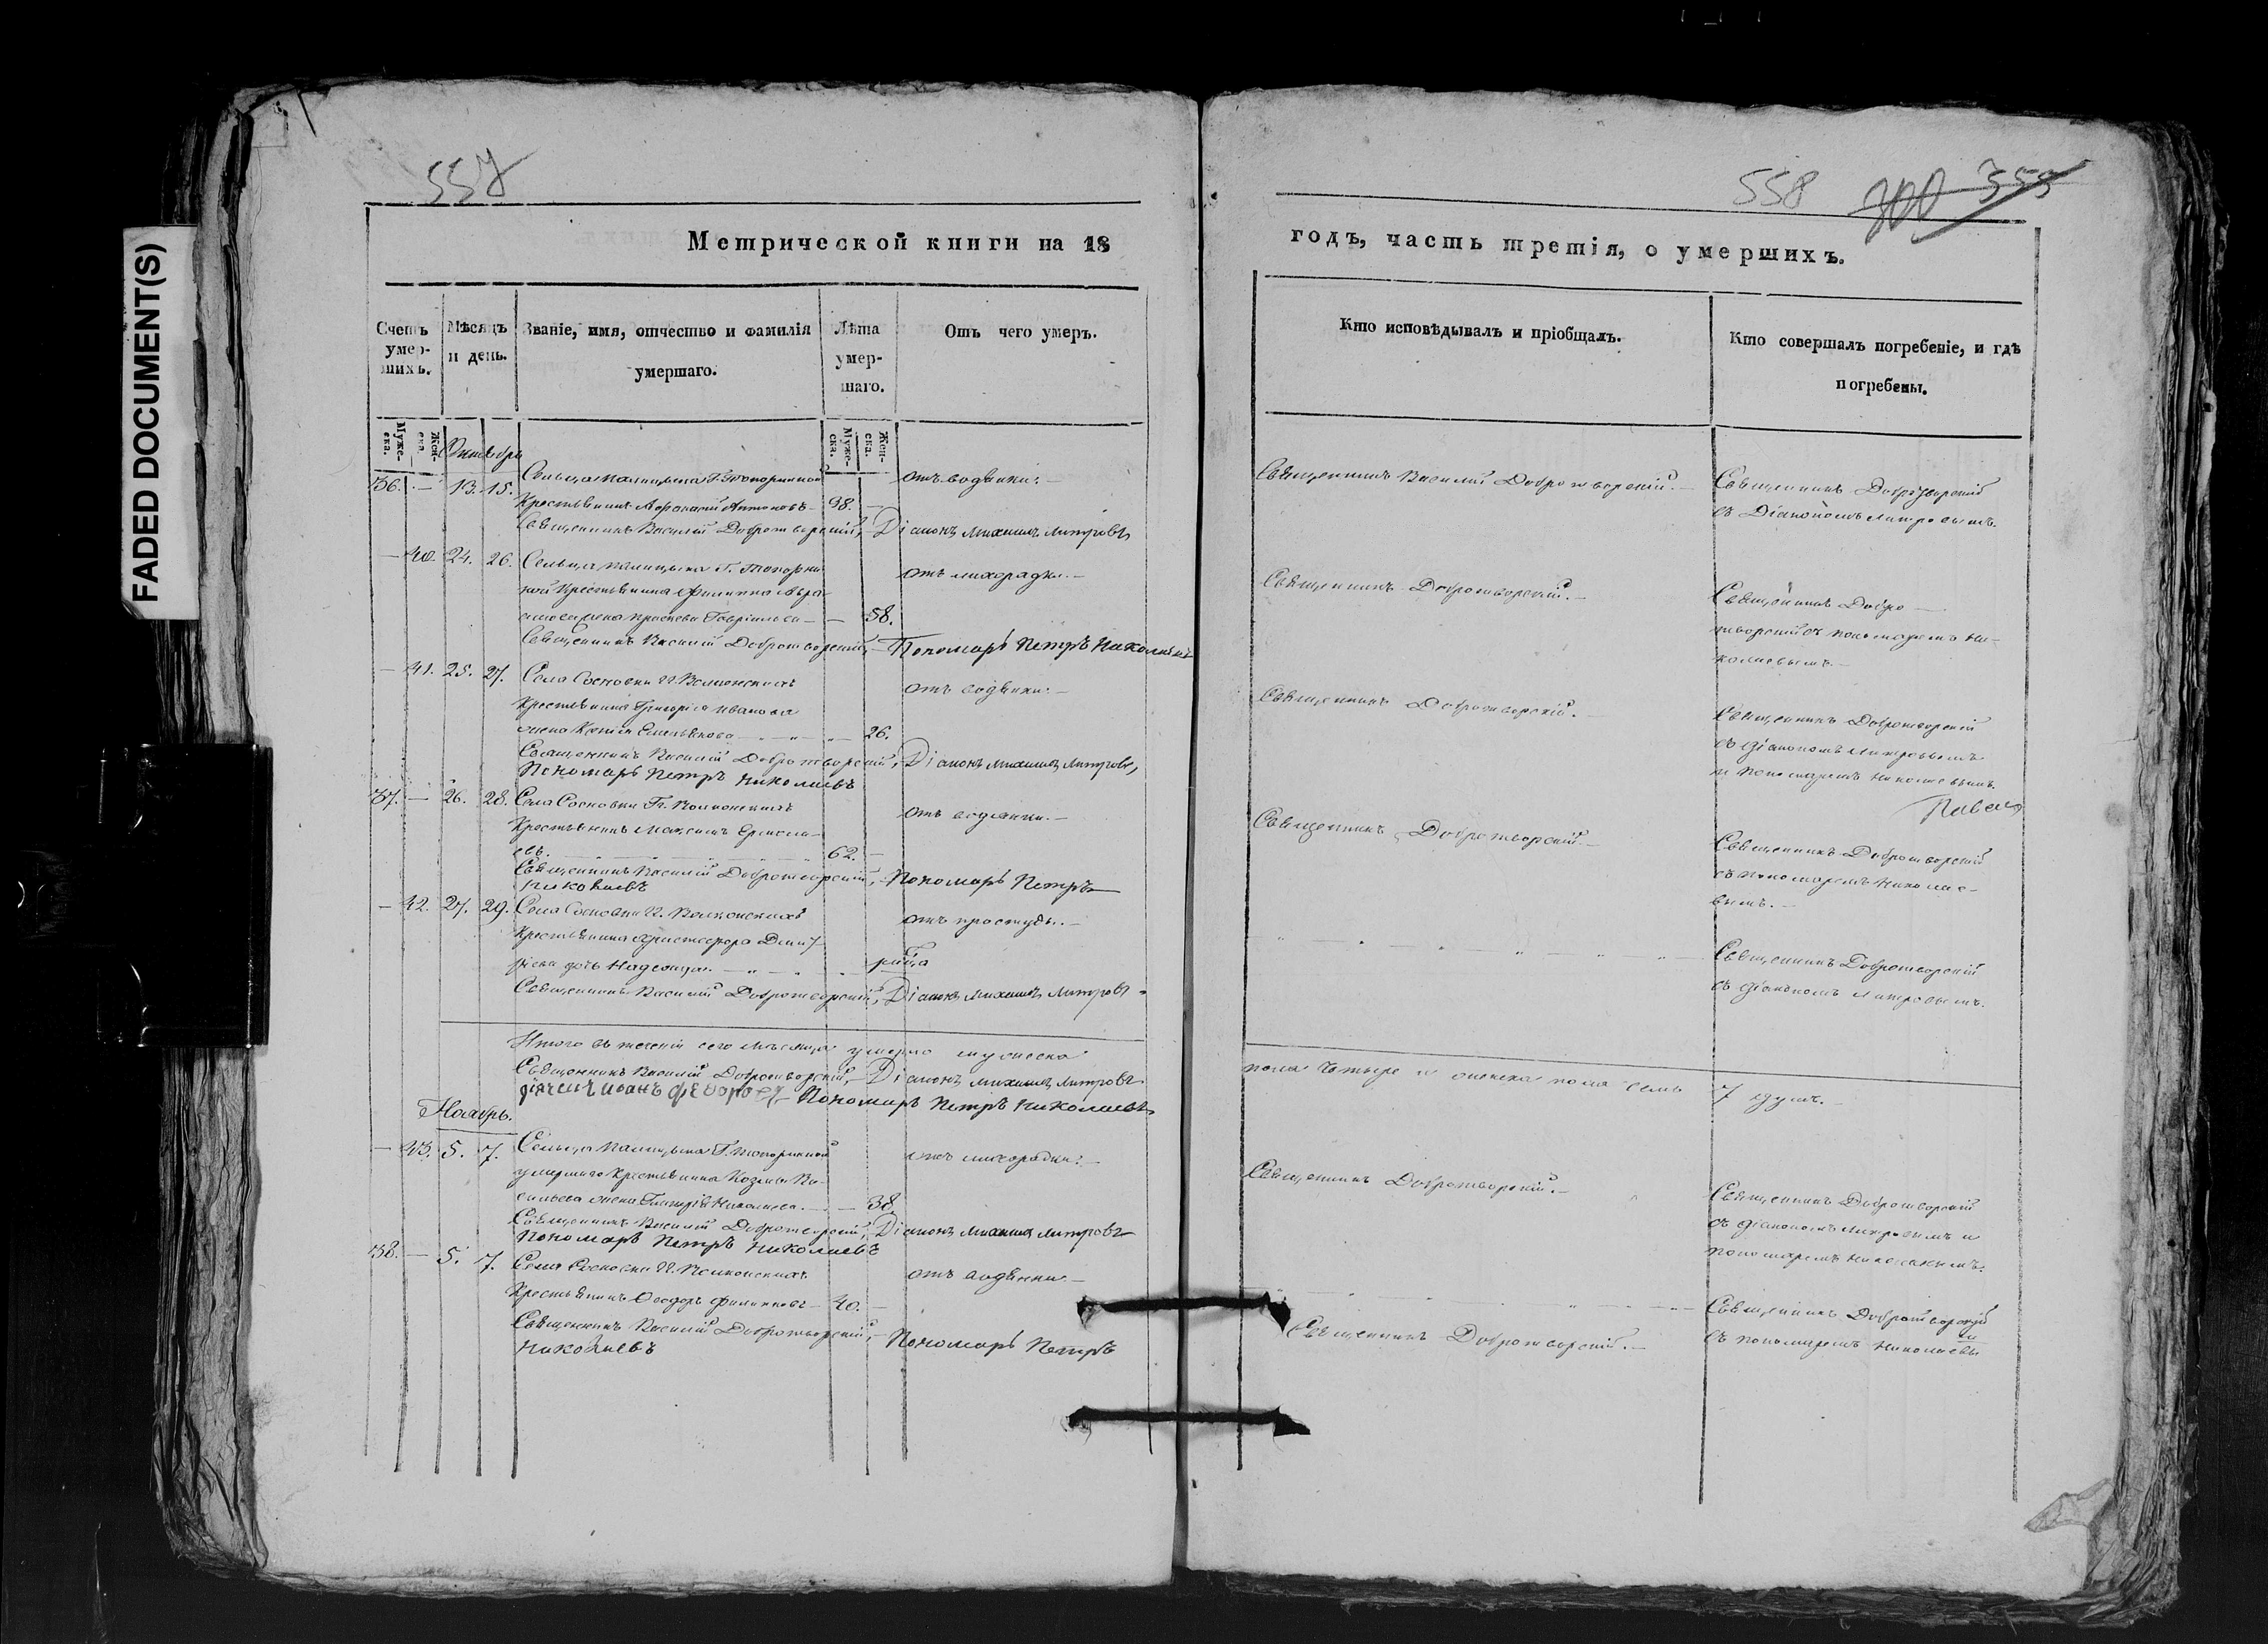 FADED DOCUMENT(S)
557
Метрической книги на 18
Счетъ умер-шихъ.
Мѣсяцъ и день.
Званіе, имя, отчество и фамилія умершаго.
Лѣта умер-шаго.
Отъ чего умеръ.
Муже-ска.
Жен-ска.
Октябрь
Муже-ска.
Жен-ска.
36. — 13. 15.
Крестьянинъ Афанасій Антоновъ 38. —
отъ водянки. —
Священникъ Василій Добротворскій, Діаконъ Михаилъ Митровъ
— 40. 24. 26.
58.
отъ лихорадки. —
Священникъ Василій Добротворскій, Пономарь Петръ Николаевъ
— 41. 25. 27. Села Сосновки
Крестьянина Григорія Иванова
жена Ксенія Емельянова — 26.
отъ водянки. —
Священникъ Василій Добротворскій, Діаконъ Михаилъ Митровъ,
Пономарь Петръ Николаевъ
37. — 26. 28. Села Сосновки
Крестьянинъ Максимъ Ермола-
евъ. 62. —
отъ водянки. —
Священникъ Василій Добротворскій, Пономарь Петръ
Николаевъ
— 42. 27. 29. Села Сосновки
Крестьянина Христофора Дмит-
ріева дочь Надежда.
отъ простуды. —
Священникъ Василій Добротворскій, Діаконъ Михаилъ Митровъ
Итого въ теченіи сего мѣсяца умерло мужеска
Священникъ Василій Добротворскій, Діаконъ Михаилъ Митровъ
дьячекъ Иванъ Федоровъ Пономарь Петръ Николаевъ
Ноябрь.
— 43. 5. 7.
умершаго Крестьянина Козмы Ва-
сильева жена Николаева. — 38.
отъ лихорадки. —
Священникъ Василій Добротворскій, Діаконъ Михаилъ Митровъ
Пономарь Петръ Николаевъ
38. — 5. 7. Села Сосновки
Крестьянинъ Ѳеодоръ Филипповъ — 40. —
отъ водянки. —
Священникъ Василій Добротворскій, Пономарь Петръ
Николаевъ
558 355
годъ, часть третія, о умершихъ.
Кто исповѣдывалъ и пріобщалъ.
Кто совершалъ погребеніе, и гдѣ погребены.
Священникъ Василій Добротворскій. —
Священникъ Добротворскій
съ Діакономъ Митровымъ.
Священникъ Добротворскій. —
Священникъ Добро-
творскій съ пономаремъ Ни-
колаевымъ. —
Священникъ Добротворскій. —
Священникъ Добротворскій
съ діакономъ Митровымъ
и пономаремъ Николаевымъ.
Священникъ Добротворскій. —
Священникъ Добротворскій
съ пономаремъ Николае-
вымъ. —
Священникъ Добротворскій
съ діакономъ Митровымъ.
пола четыре и женска пола семь 7 душъ. —
Священникъ Добротворскій. —
Священникъ Добротворскій
съ діакономъ Митровымъ и
пономаремъ Николаевымъ.
Священникъ Добротворскій. —
Священникъ Добротворскій
съ пономаремъ Николаевы